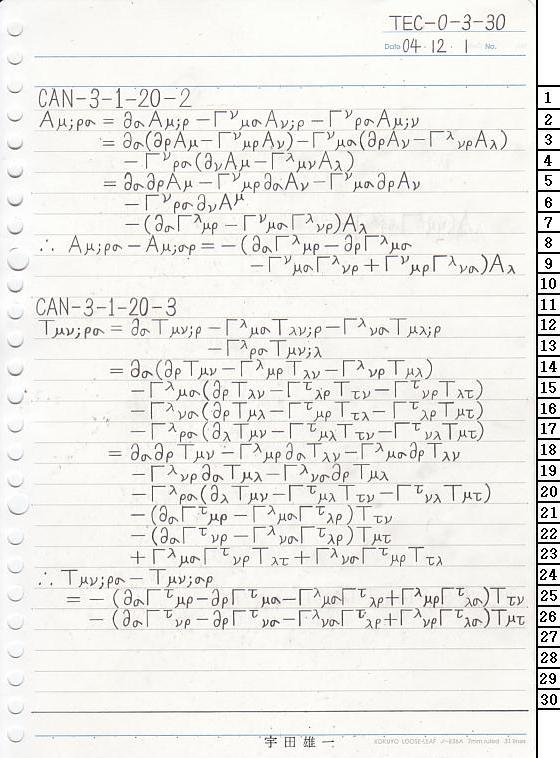 TEC-0-3-30
Date 04・12・1 No.
CAN-3-1-20-2
Aμ;ρσ = ∂σAμ;ρ − Γ^ν_μσ Aν;ρ − Γ^ν_ρσ Aμ;ν
= ∂σ(∂ρAμ − Γ^ν_μρ Aν) − Γ^ν_μσ(∂ρAν − Γ^λ_νρ Aλ)
− Γ^ν_ρσ(∂νAμ − Γ^λ_μν Aλ)
= ∂σ∂ρAμ − Γ^ν_μρ ∂σAν − Γ^ν_μσ ∂ρAν
− Γ^ν_ρσ ∂νA^μ
− (∂σΓ^λ_μρ − Γ^ν_μσ Γ^λ_νρ)Aλ
∴ Aμ;ρσ − Aμ;σρ = − (∂σΓ^λ_μρ − ∂ρΓ^λ_μσ
− Γ^ν_μσ Γ^λ_νρ + Γ^ν_μρ Γ^λ_νσ)Aλ
CAN-3-1-20-3
Tμν;ρσ = ∂σTμν;ρ − Γ^λ_μσ Tλν;ρ − Γ^λ_νσ Tμλ;ρ
− Γ^λ_ρσ Tμν;λ
= ∂σ(∂ρTμν − Γ^λ_μρ Tλν − Γ^λ_νρ Tμλ)
− Γ^λ_μσ(∂ρTλν − Γ^τ_λρ Tτν − Γ^τ_νρ Tλτ)
− Γ^λ_νσ(∂ρTμλ − Γ^τ_μρ Tτλ − Γ^τ_λρ Tμτ)
− Γ^λ_ρσ(∂λTμν − Γ^τ_μλ Tτν − Γ^τ_νλ Tμτ)
= ∂σ∂ρTμν − Γ^λ_μρ ∂σTλν − Γ^λ_μσ ∂ρTλν
− Γ^λ_νρ ∂σTμλ − Γ^λ_νσ ∂ρTμλ
− Γ^λ_ρσ(∂λTμν − Γ^τ_μλ Tτν − Γ^τ_νλ Tμτ)
− (∂σΓ^τ_μρ − Γ^λ_μσ Γ^τ_λρ)Tτν
− (∂σΓ^τ_νρ − Γ^λ_νσ Γ^τ_λρ)Tμτ
+ Γ^λ_μσ Γ^τ_νρ Tλτ + Γ^λ_νσ Γ^τ_μρ Tτλ
∴ Tμν;ρσ − Tμν;σρ
= − (∂σΓ^τ_μρ − ∂ρΓ^τ_μσ − Γ^λ_μσ Γ^τ_λρ + Γ^λ_μρ Γ^τ_λσ)Tτν
− (∂σΓ^τ_νρ − ∂ρΓ^τ_νσ − Γ^λ_νσ Γ^τ_λρ + Γ^λ_νρ Γ^τ_λσ)Tμτ
宇田雄一
KOKUYO LOOSE-LEAF ノ-836A 7mm ruled 31 lines
1
2
3
4
5
6
7
8
9
10
11
12
13
14
15
16
17
18
19
20
21
22
23
24
25
26
27
28
29
30